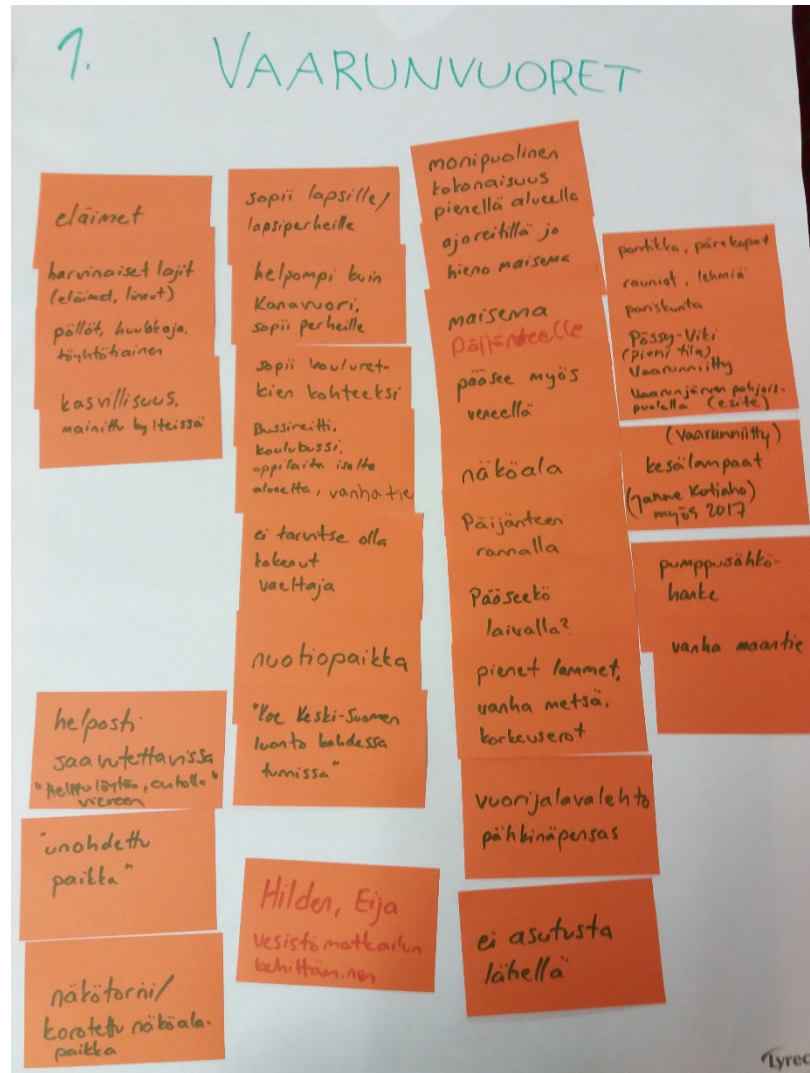 1. VAARUNVUORET
eläimet
harvinaiset lajit
(eläimet, linnut)
pöllöt, huuhkaja,
töyhtötiainen
kasvillisuus,
mainittu kylteissä
helposti
saavutettavissa
"helppo löytää, autolla"
viereen
"unohdettu
paikka"
näkötorni/
korotettu näköala-
paikka
sopii lapsille/
lapsiperheille
helpompi kuin
Kanavuori,
sopii perheille
sopii kouluret-
kien kohteeksi
Bussireitti,
koulubussi,
oppilaita isolta
alueelta, vanha tie
ei tarvitse olla
kokenut
vaeltaja
nuotiopaikka
"Koe Keski-Suomen
luonto kahdessa
tunnissa"
Hilden, Eija
vesistömatkailun
kehittäminen
monipuolinen
kokonaisuus
pienellä alueella
ajoreitillä jo
hieno maisema
maisema
Päijänteelle
pääsee myös
veneellä
näköala
Päijänteen
rannalla
Pääseekö
laivalla?
pienet lammet,
vanha metsä,
korkeuserot
vuorijalavalehto
pähkinäpensas
ei asutusta
lähellä
pontikka, pärekopat
rauniot, lehmiä
pariskunta
Pässy-Viki
(pieni tila)
Vaarunniitty
Vaarunjärven pohjois-
puolella (esite)
(Vaarunniitty)
kesälampaat
(Janne Kotiaho)
myös 2017
pumppusähkö-
hanke
vanha maantie
Lyrec